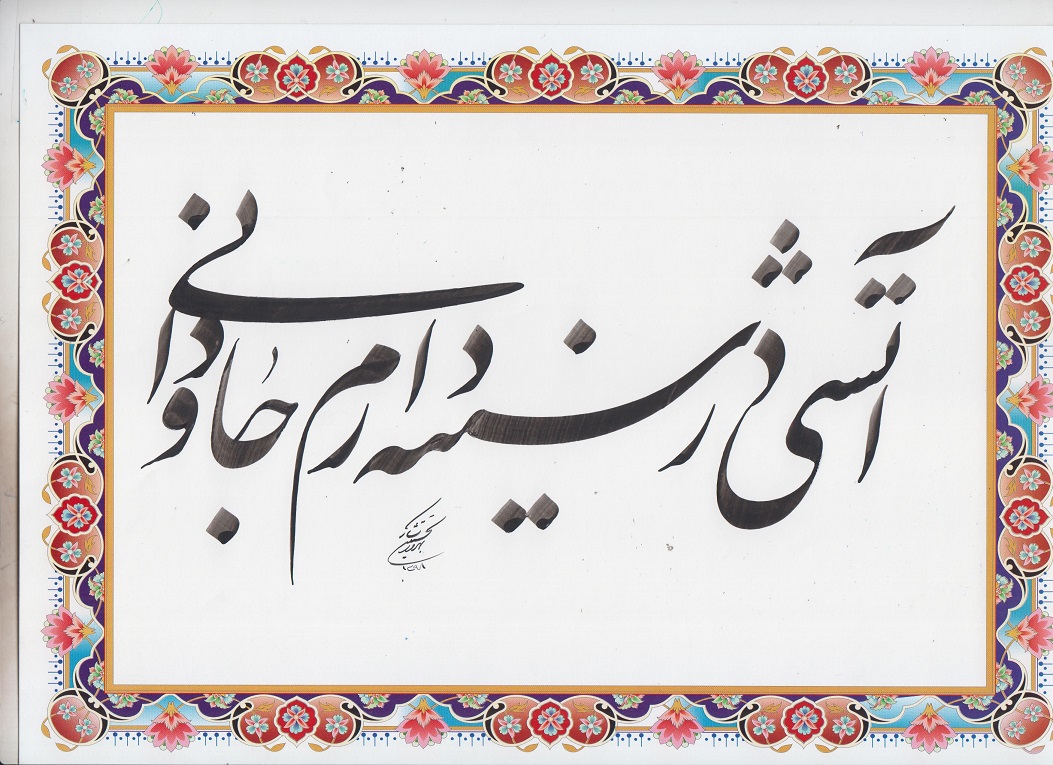 آتشی در سینه دارم جاودانی